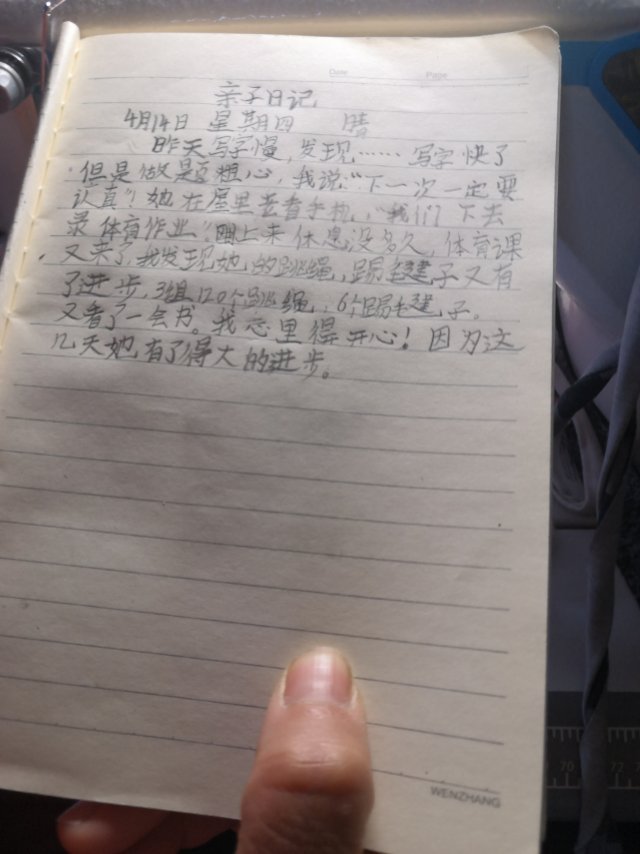 Date Page
亲子日记
4月14日 星期四 晴
昨天写字慢，发现……写字快了
但是做题粗心，我说："下一次一定要
认真"！她在屋里去看手机，"我们下去
录体育作业"。上来休息没多久，体育课
又来了，我发现她的跳绳，踢毽子又有
了进步，3组120个跳绳，6个踢毽子。
又看了一会书。我心里得开心！因为这
几天她有了得大的进步。
WENZHANG
70 72